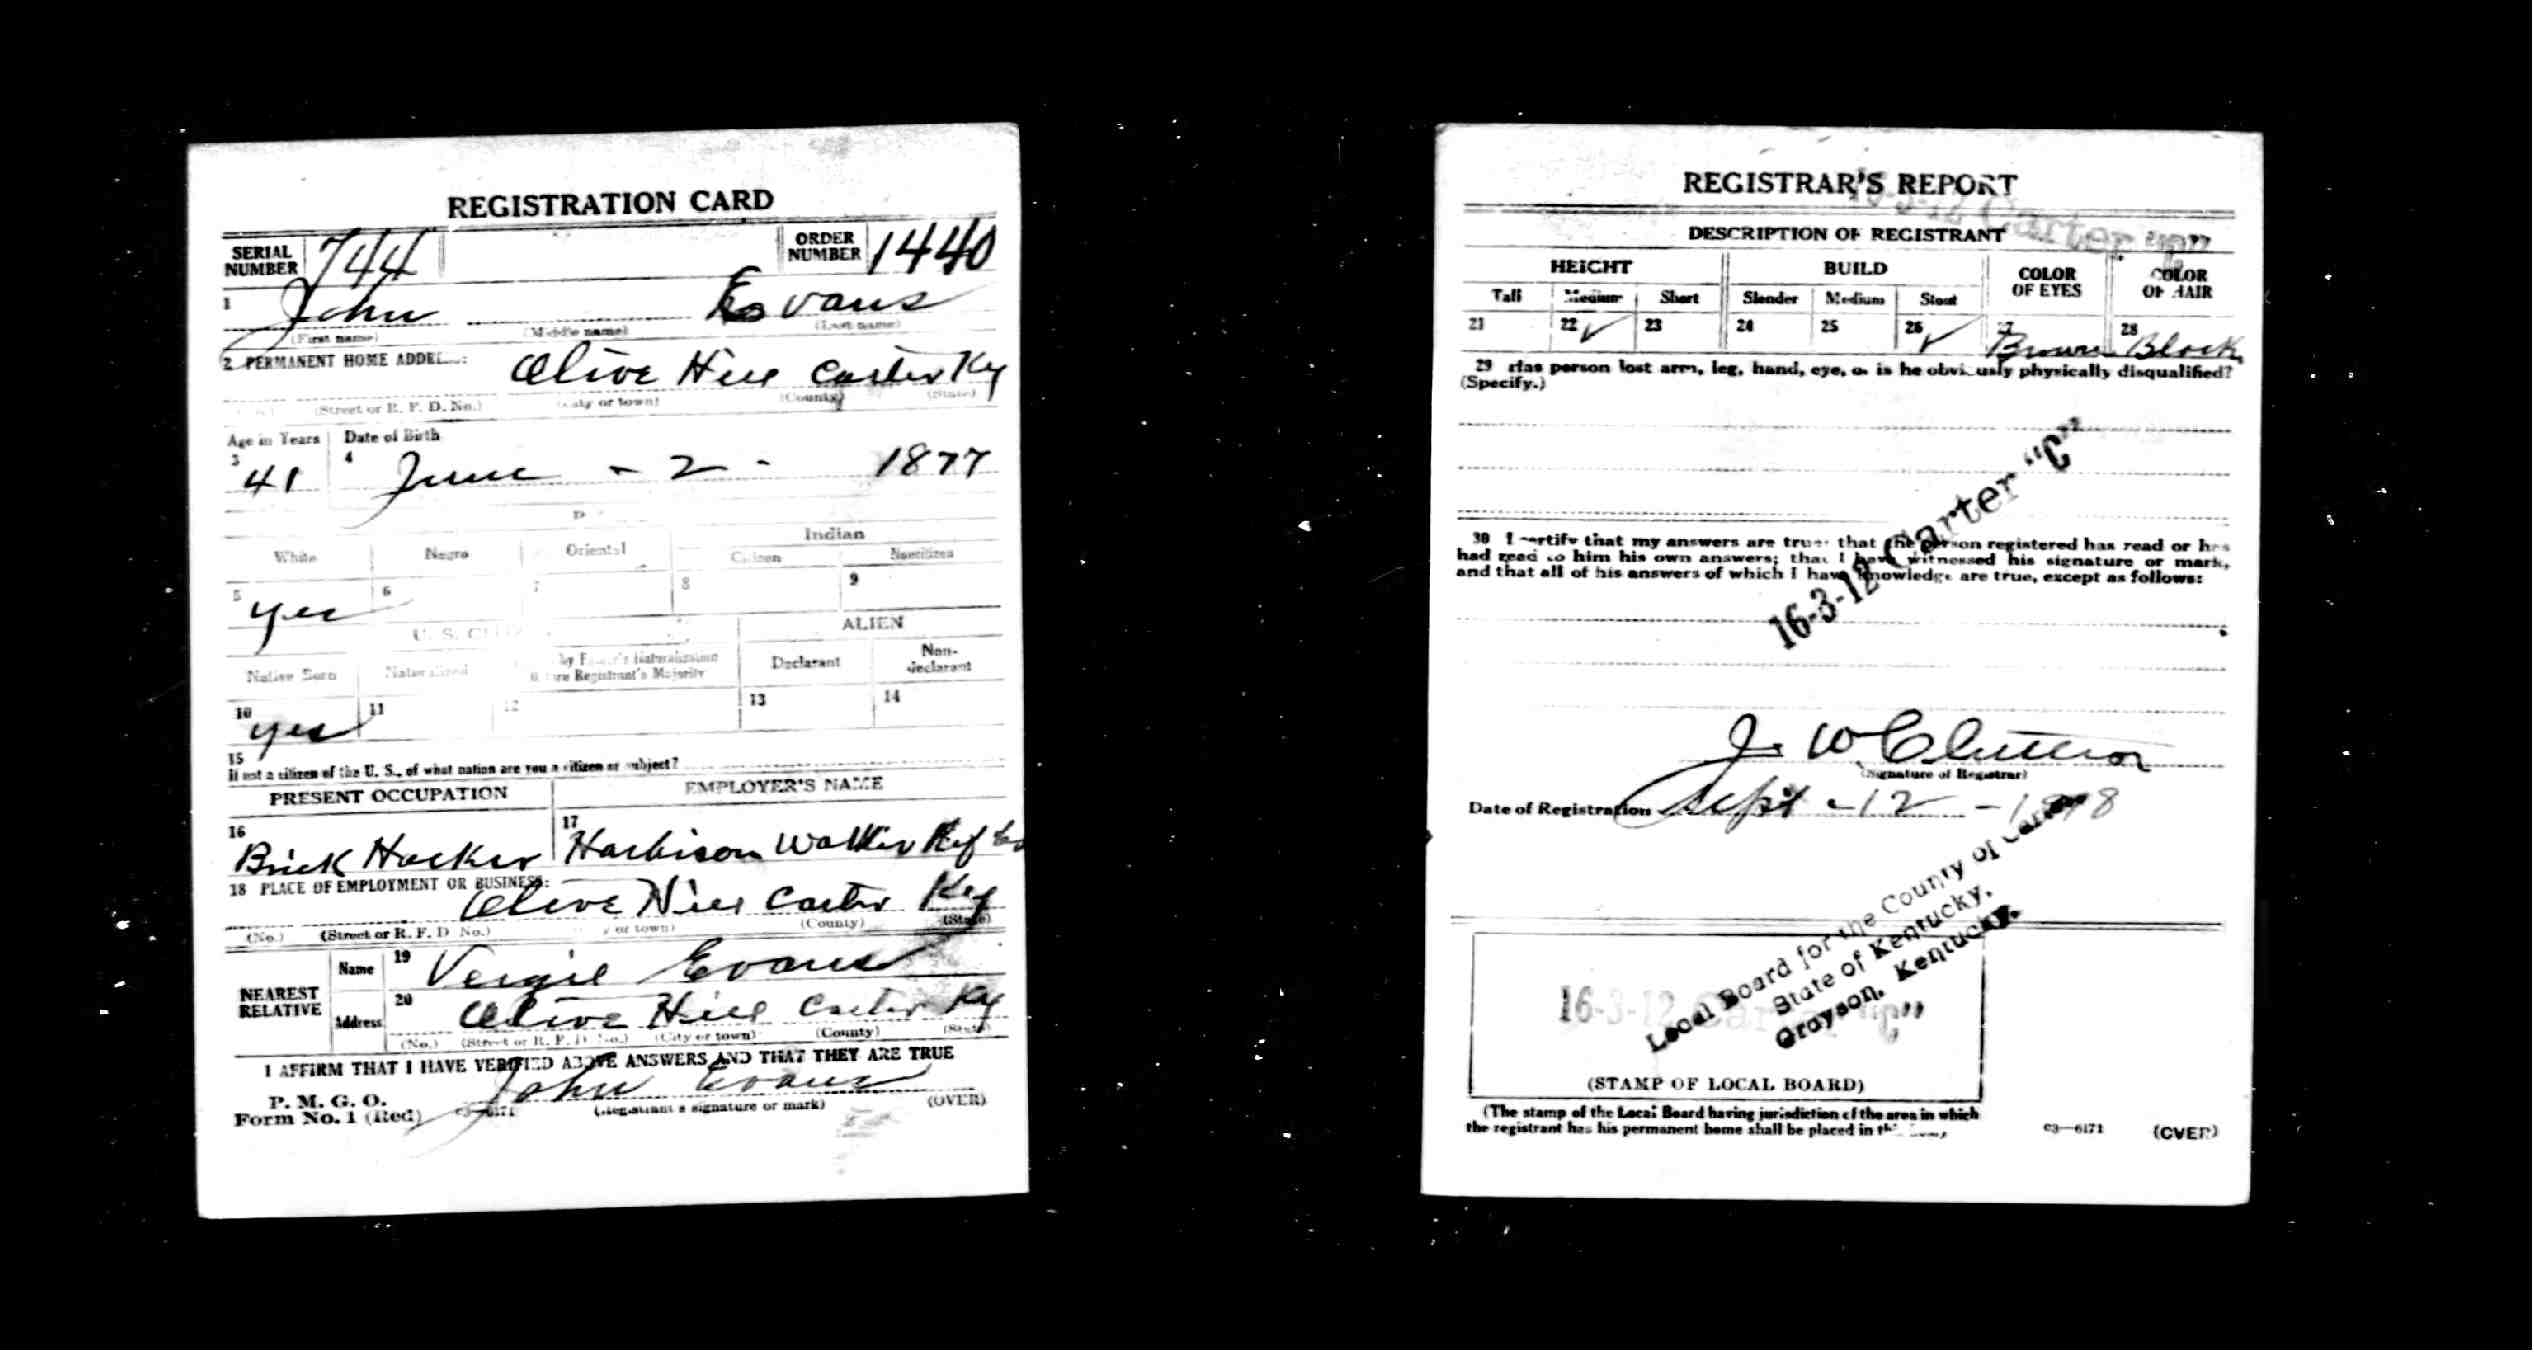 REGISTRATION CARD
SERIAL NUMBER 744 ORDER NUMBER 1440
1 John Evans
(First name) (Middle name) (Last name)
2 PERMANENT HOME Olive Hill Carter Ky
(Street or R. F. D. No.) (City or town) (County) (State)
Age in Years Date of Birth
3 41 4 June - 2 - 1877
Indian
White Negro Oriental Citizen Noncitizen
5 yes 6 7 8 9
U. S. ALIEN
Native Born Naturalized by Father's Naturalization Before Registrant's Majority Declarant Non-declarant
10 yes 11 12 13 14
15
If not a citizen of the U. S., of what nation are you a citizen or subject?
PRESENT OCCUPATION EMPLOYER'S NAME
16 Brick Hacker 17 Harbison Walker Ref Co
18 PLACE OF EMPLOYMENT OR BUSINESS:
Olive Hill Carter Ky
(No.) (Street or R. F. D. No.) or town) (County) (State)
NEAREST RELATIVE Name 19 Vergie Evans
Address 20 Olive Hill Carter Ky
(No.) (Street or R. F. D. No.) (City or town) (County) (State)
I AFFIRM THAT I HAVE VERIFIED ABOVE ANSWERS AND THAT THEY ARE TRUE
John Evans
P. M. G. O.
Form No. 1 (Red) 03—6171 (Registrant's signature or mark) (OVER)
REGISTRAR'S REPORT
16-3-12 Carter "C"
DESCRIPTION OF REGISTRANT
HEIGHT BUILD COLOR OF EYES COLOR OF HAIR
Tall Medium Short Slender Medium Stout
21 22 ✓ 23 24 25 26 ✓ 27 Brown 28 Black
29 Has person lost arm, leg, hand, eye, or is he obviously physically disqualified?
(Specify.)
16-3-12 Carter "C"
30 I certify that my answers are true; that the person registered has read or has
had read to him his own answers; that I have witnessed his signature or mark,
and that all of his answers of which I have knowledge are true, except as follows:
J. W.
(Signature of Registrar)
Date of Registration Sept - 12 - 1918
Local Board for the County of Carter
State of Kentucky.
Grayson, Kentucky.
16-3-12 Carter "C"
(STAMP OF LOCAL BOARD)
(The stamp of the Local Board having jurisdiction of the area in which
the registrant has his permanent home shall be placed in this
03—6171 (OVER)